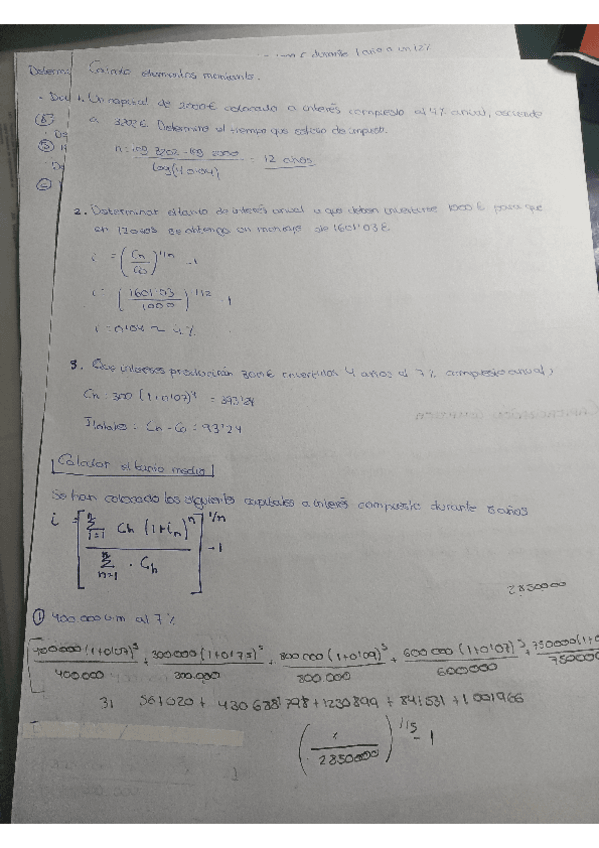 durante 1 año a un 12%
Determ
Calculo elementos montante.
1. Un capital de 2000€ colocado a interés compuesto al 4% anual, asciende
a 3202€. Determina el tiempo que estuvo
n = log 3202 - log 2000 / log (1+0'04) = 12 años
2. Determinar el tanto de interés anual a que deben invertirse 1000€ para que
en 12 años se obtenga un montante de 1601'03€
i = (Cn/C0)^1/n - 1
i = (1601'03/1000)^1/12 - 1
i = 0'04 ~ 4%
3. Que intereses producirán 300€ invertidos 4 años al 7% compuesto anual,
Cn = 300 (1+0'07)⁴ = 393'24
Itotales = Cn - C0 = 93'24
Calcular el tanto medio
Se han colocado los siguientes capitales a interés compuesto durante 5 años
i = [ Σ Ch (1+in)^n / Σ · Ch ]^1/n - 1
2850000
① 400.000 um al 7%
400000 (1+0'07)⁵ / 400.000 + 300000 (1+0'075)⁵ / 300.000 + 800.000 (1+0'09)⁵ / 800.000 + 600000 (1+0'07)⁵ / 600000 + 750000 (1+0 / 750000
31 561020 + 430688'798 + 1230899 + 841531 + 1001966
( / 2850000 )^1/5 - 1